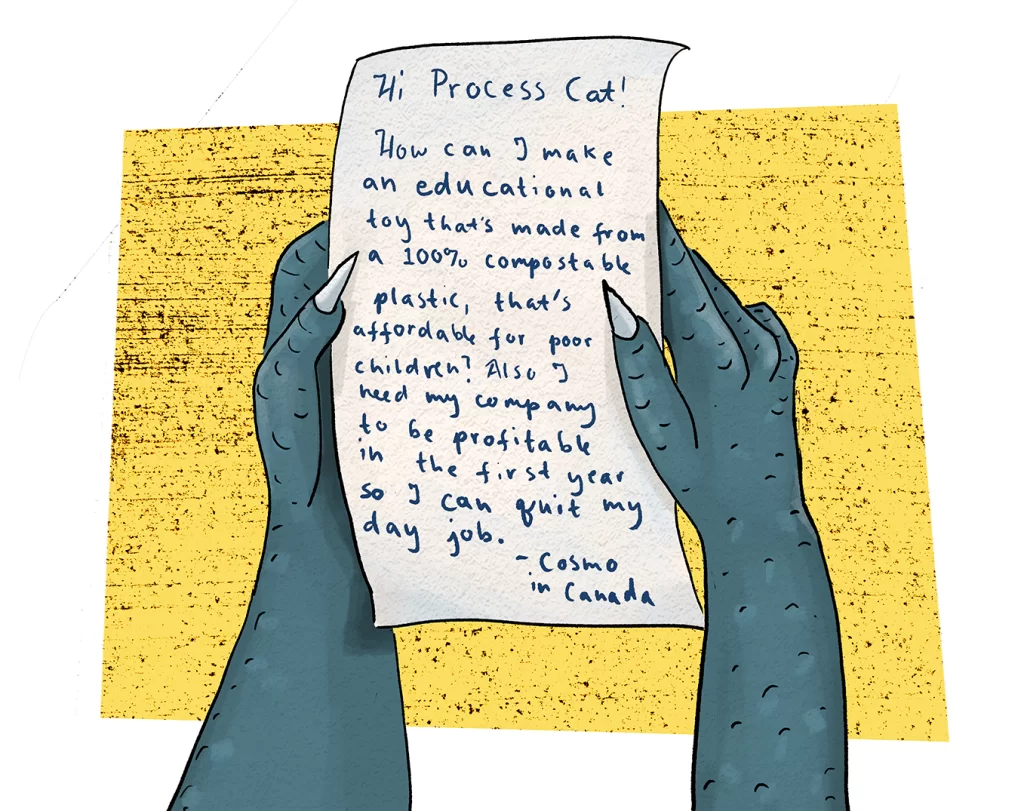 Hi Process Cat!
How can I make
an educational
toy that's made from
a 100% compostable
plastic, that's
affordable for poor
children? Also I
need my company
to be profitable
in the first year
so I can quit my
day job.
- Cosmo
in Canada